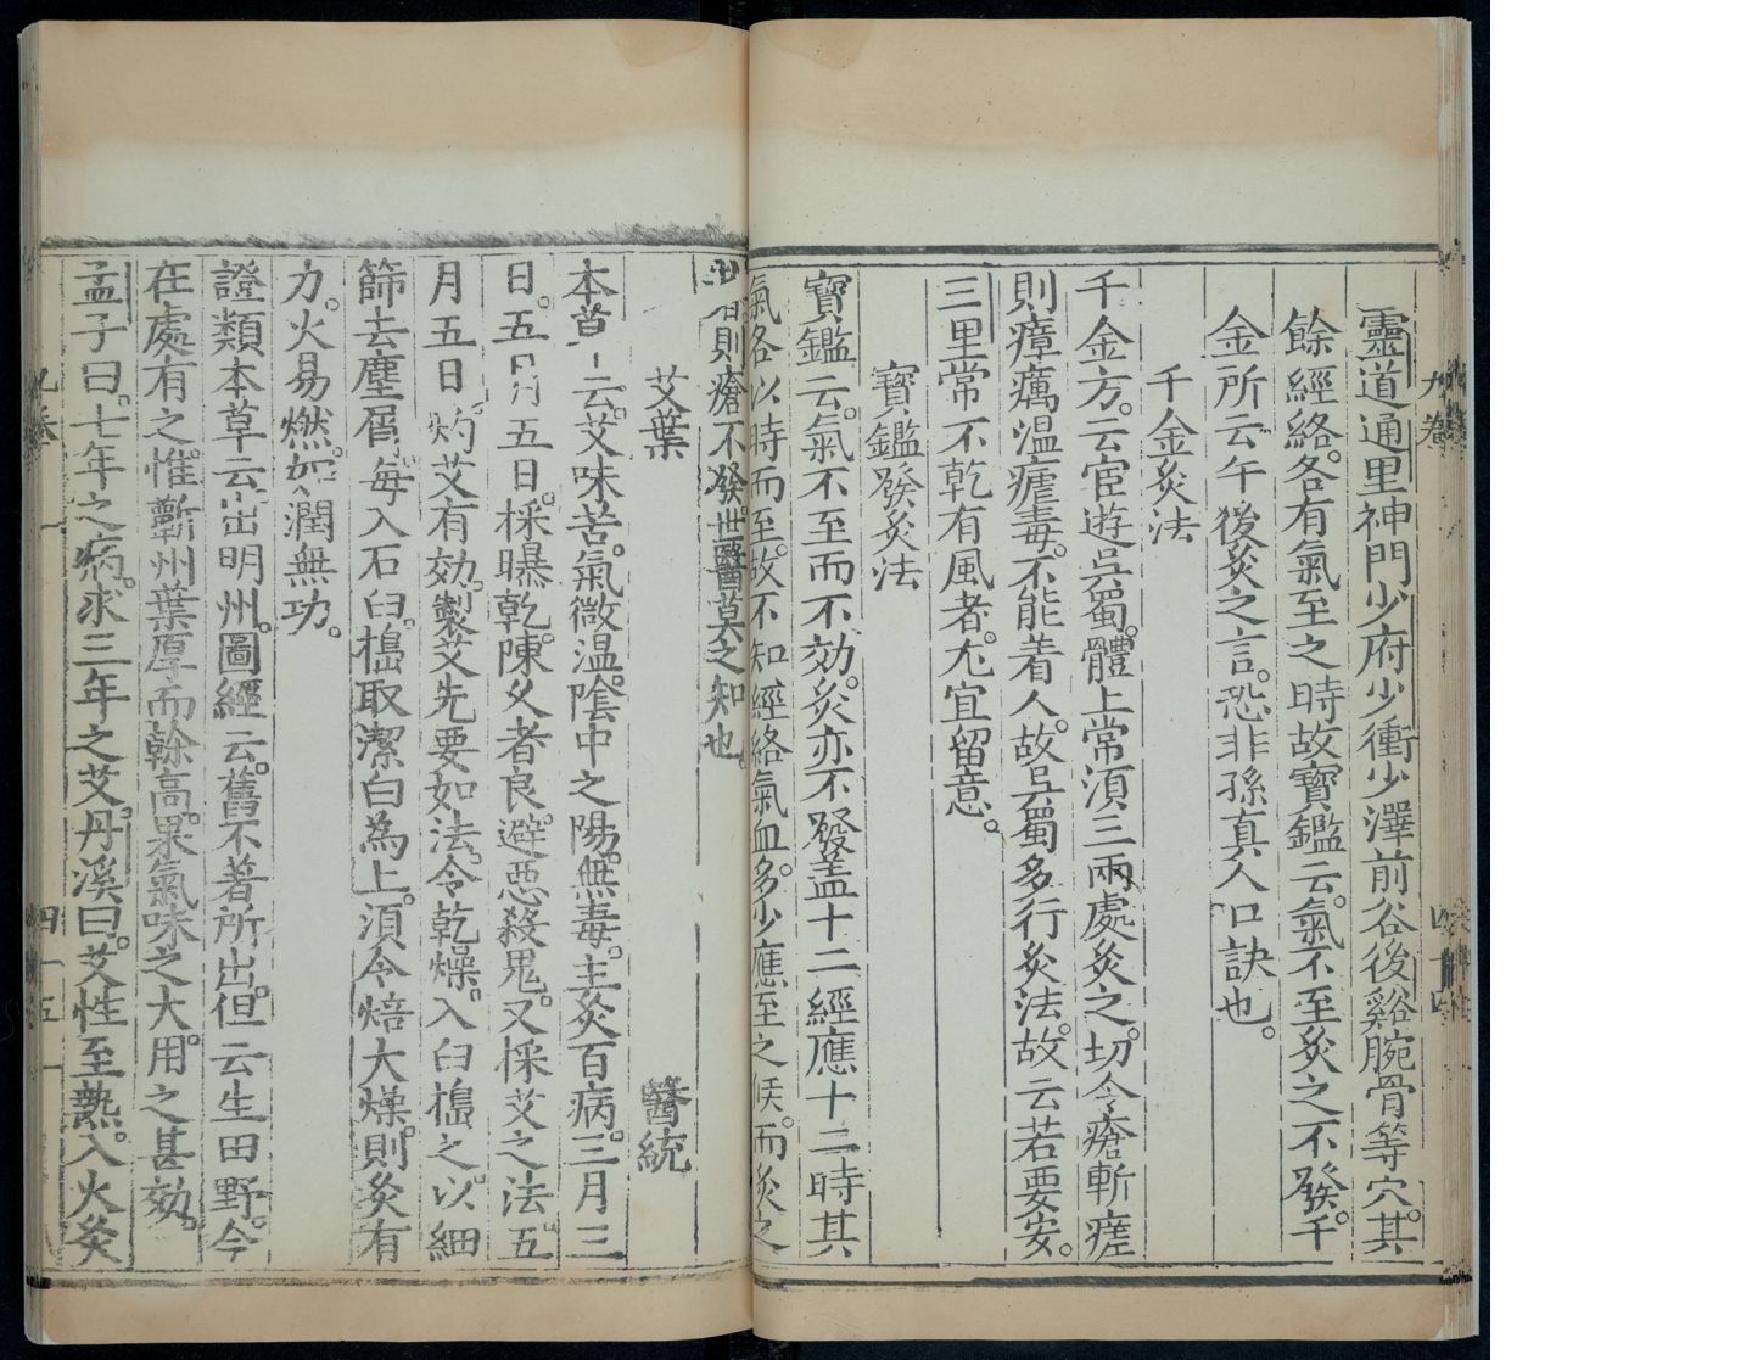 九卷
四十四
靈道通里神門少府少衝少澤前谷後谿腕骨等穴。其
餘經絡。各有氣至之時故寶鑑云。氣不至灸之不發。千
金所云午後灸之言。恐非孫真人口訣也。
千金灸法
千金方。云宦遊吳蜀。體上常須三兩處灸之。切令瘡暫瘥
則瘴癘温瘧毒。不能着人。故吳蜀多行灸法。故云若要安。
三里常不乾有風者。尤宜留意。
寶鑑發灸法
寶鑑云。氣不至而不効。灸亦不發蓋十二經應十二時其
氣各以時而至。故不知經絡氣血多。少應至之候。而灸之
則瘡不發。世醫莫之知也。
艾葉 醫統
本草云。艾味苦。氣微温。陰中之陽。無毒。主灸百病。三月三
日。五月五日。採曝乾。陳久者良。避惡殺鬼。又採艾之法五
月五日灼艾有効。製艾先要如法。令乾燥。入臼搗之。以細
篩去塵屑。每入石臼。搗取潔白為上。須令焙大燥。則灸有
力。火易燃。如潤無功。
證類本草云出明州。圖經云。舊不著所出。但云生田野。今
在處有之。惟蘄州葉厚而幹高。果氣味之大。用之甚効。
孟子曰。七年之病。求三年之艾。丹溪曰。艾性至熱。入火灸